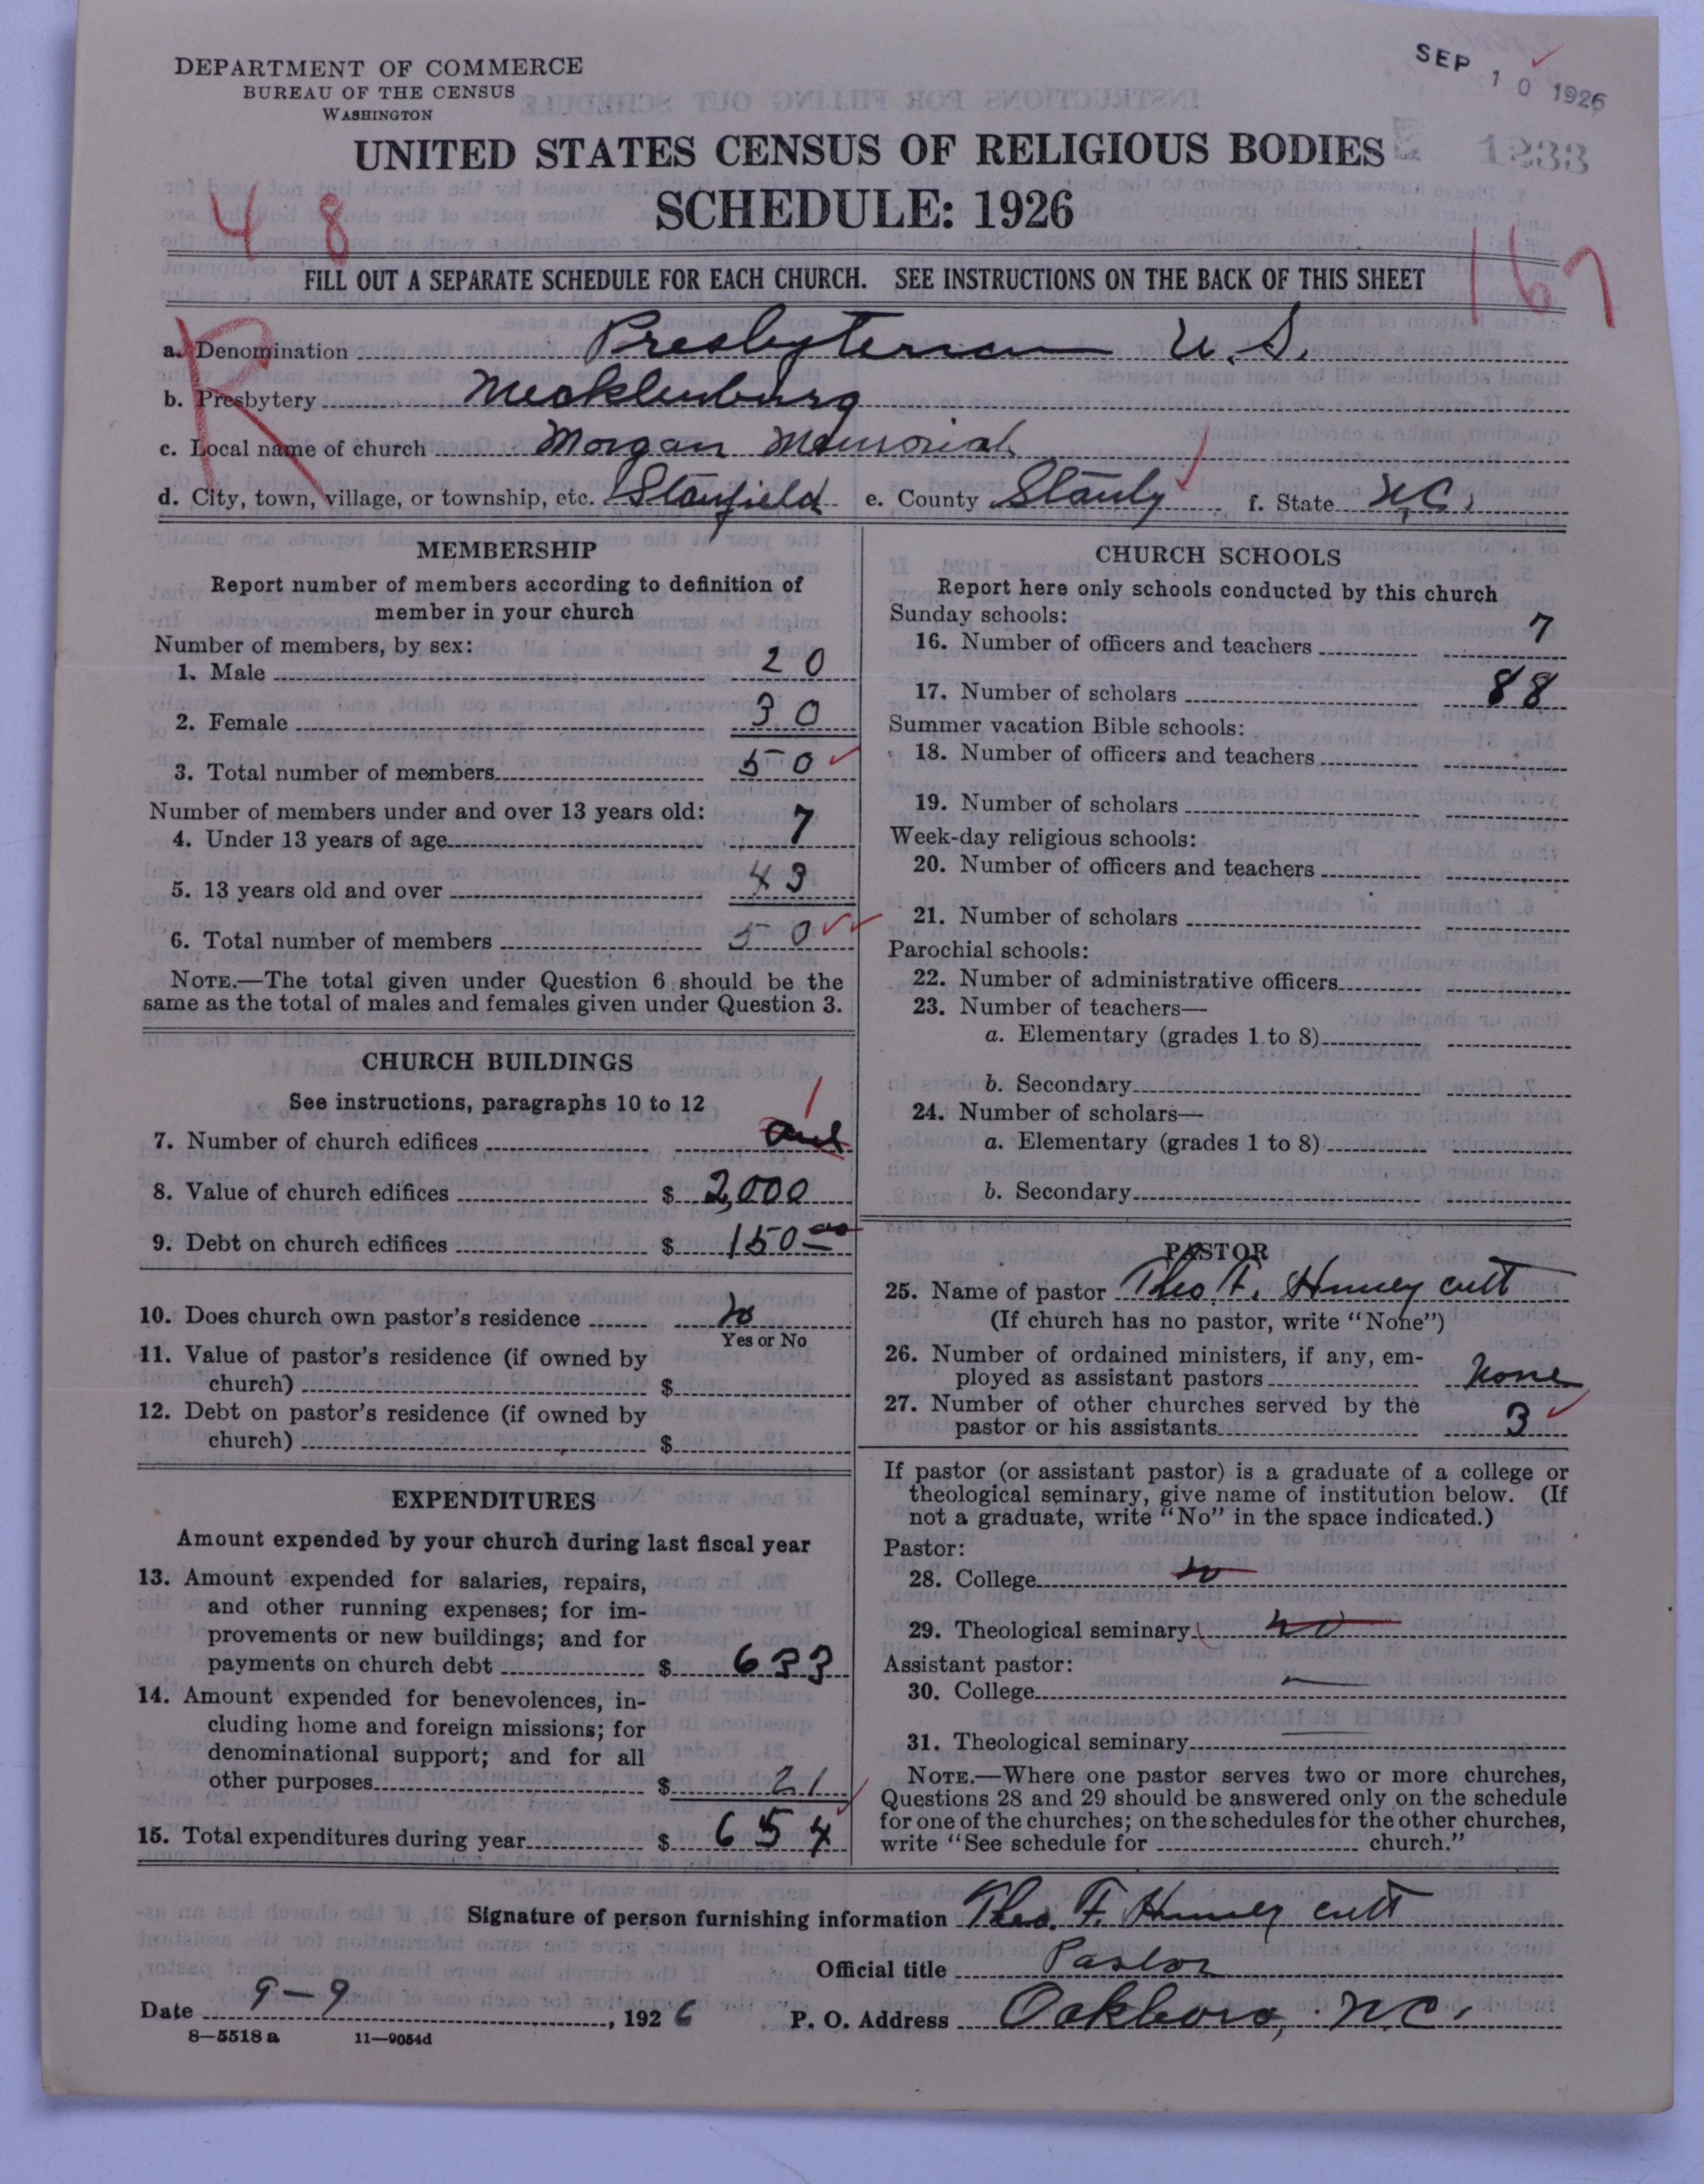 DEPARTMENT OF COMMERCE
BUREAU OF THE CENSUS
WASHINGTON
SEP 10 1926
UNITED STATES CENSUS OF RELIGIOUS BODIES
1233
SCHEDULE: 1926
48
167
FILL OUT A SEPARATE SCHEDULE FOR EACH CHURCH. SEE INSTRUCTIONS ON THE BACK OF THIS SHEET
R
a. Denomination Presbyterian U.S.
b. Presbytery Mecklenburg
c. Local name of church Morgan Memorial
d. City, town, village, or township, etc. Stanfield e. County Stanly f. State N.C.
MEMBERSHIP
Report number of members according to definition of
member in your church
Number of members, by sex:
1. Male 20
2. Female 30
3. Total number of members 50
Number of members under and over 13 years old:
4. Under 13 years of age 7
5. 13 years old and over 43
6. Total number of members 50
NOTE.—The total given under Question 6 should be the
same as the total of males and females given under Question 3.
CHURCH BUILDINGS
See instructions, paragraphs 10 to 12
1
7. Number of church edifices one
8. Value of church edifices $ 2,000
9. Debt on church edifices $ 150 00
10. Does church own pastor's residence No
Yes or No
11. Value of pastor's residence (if owned by
church) $
12. Debt on pastor's residence (if owned by
church) $
EXPENDITURES
Amount expended by your church during last fiscal year
13. Amount expended for salaries, repairs,
and other running expenses; for im-
provements or new buildings; and for
payments on church debt $ 633
14. Amount expended for benevolences, in-
cluding home and foreign missions; for
denominational support; and for all
other purposes $ 21
15. Total expenditures during year $ 654
CHURCH SCHOOLS
Report here only schools conducted by this church
Sunday schools:
16. Number of officers and teachers 7
17. Number of scholars 88
Summer vacation Bible schools:
18. Number of officers and teachers
19. Number of scholars
Week-day religious schools:
20. Number of officers and teachers
21. Number of scholars
Parochial schools:
22. Number of administrative officers
23. Number of teachers—
a. Elementary (grades 1 to 8)
b. Secondary
24. Number of scholars—
a. Elementary (grades 1 to 8)
b. Secondary
PASTOR
25. Name of pastor Theo. F. Huneycutt
(If church has no pastor, write "None")
26. Number of ordained ministers, if any, em-
ployed as assistant pastors None
27. Number of other churches served by the
pastor or his assistants 3
If pastor (or assistant pastor) is a graduate of a college or
theological seminary, give name of institution below. (If
not a graduate, write "No" in the space indicated.)
Pastor:
28. College no
29. Theological seminary no
Assistant pastor:
30. College —
31. Theological seminary —
NOTE.—Where one pastor serves two or more churches,
Questions 28 and 29 should be answered only on the schedule
for one of the churches; on the schedules for the other churches,
write "See schedule for church."
Signature of person furnishing information Theo. F. Huneycutt
Official title Pastor
Date 9-9, 1926 P. O. Address Oakboro, N.C.
8—5518 a 11—9054d